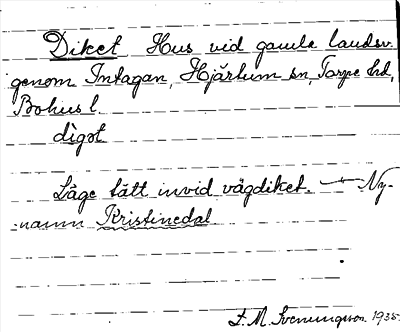 Diket Hus vid gamla landsv.
genom Intagan, Hjärtum sn, Torpe hd,
Bohus l.
dìgət
Läge tätt invid vägdiket. — Ny-
namn Kristinedal
F. M. Svenungsson 1935.